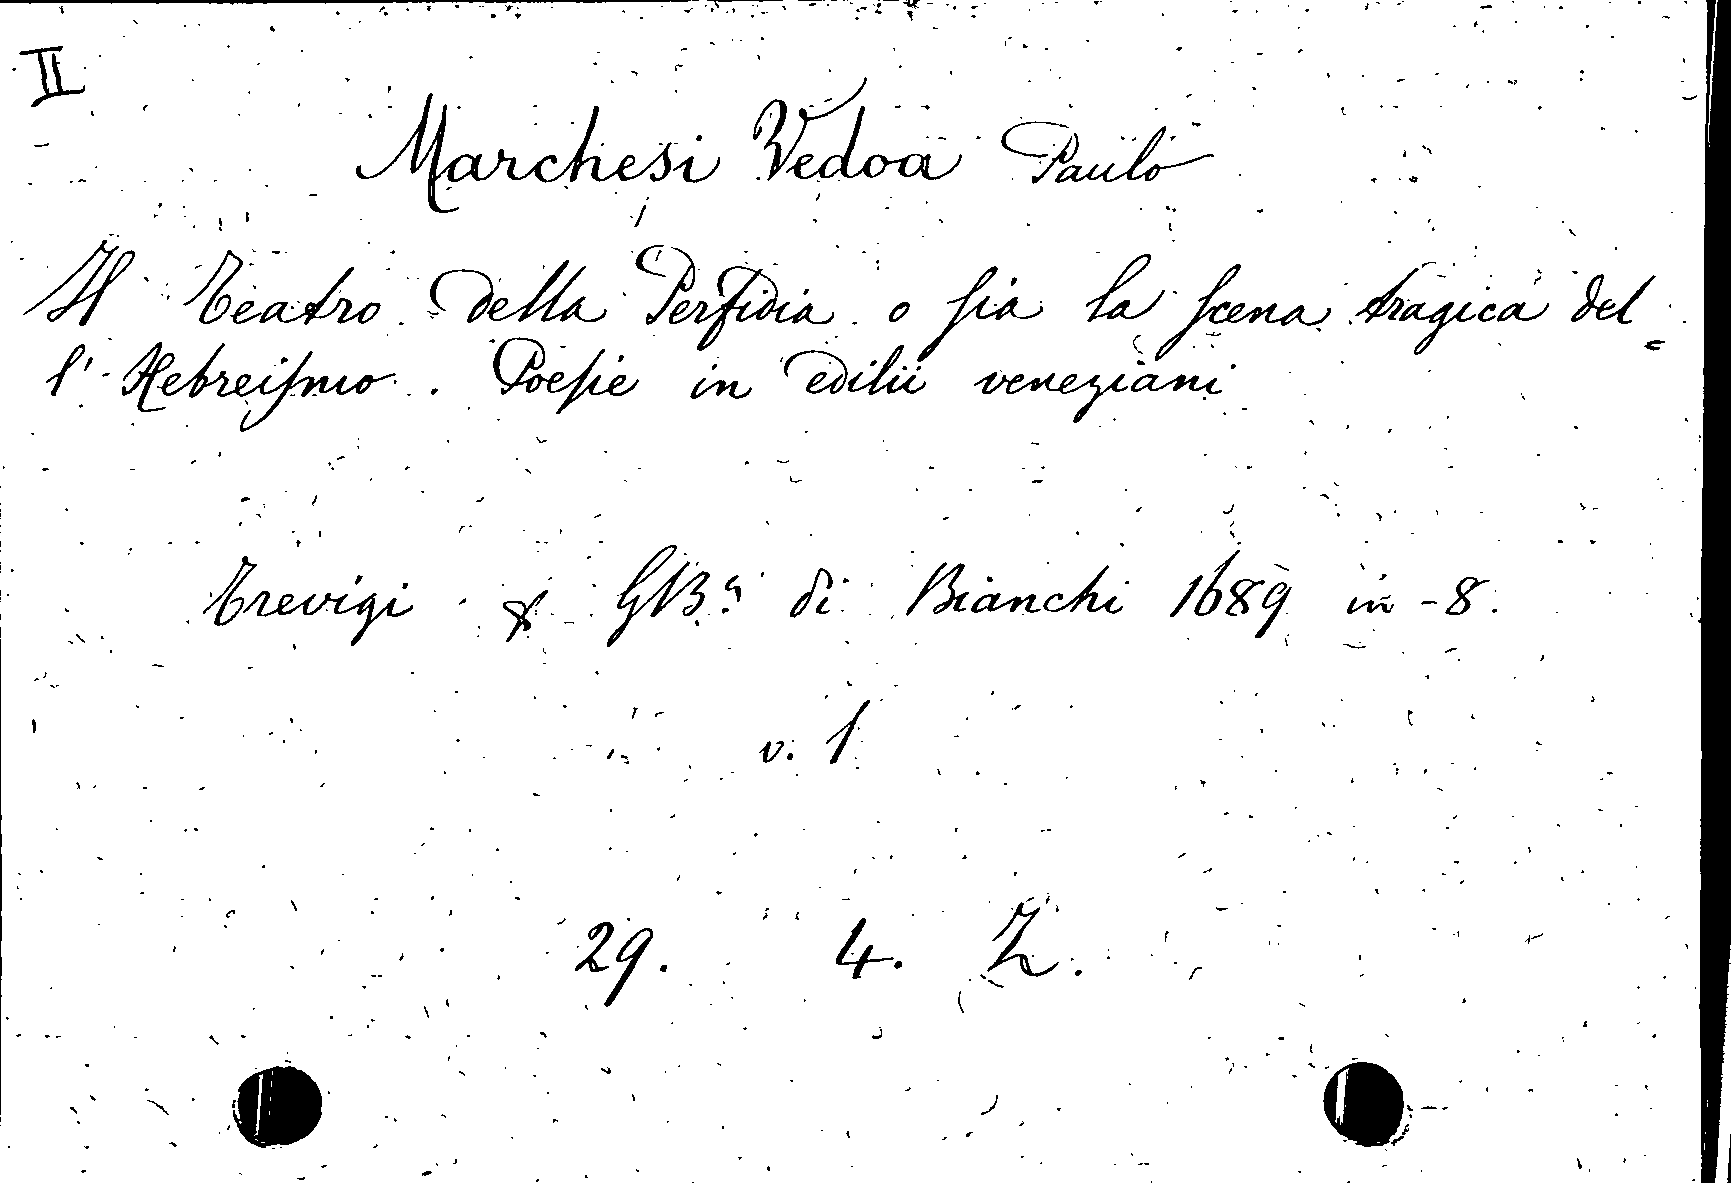 II
Marchesi Vedoa Paulo
Il Teatro della Perfidia o sia la scena tragica del=
l'Hebreismo. Poesie in edilii veneziani
Trevigi GB.a di Bianchi 1689 in-8.
v. 1
29. 4. Z.